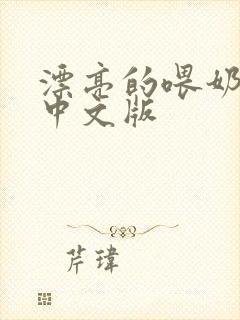 漂亮的喂奶
中文版
芹瑋